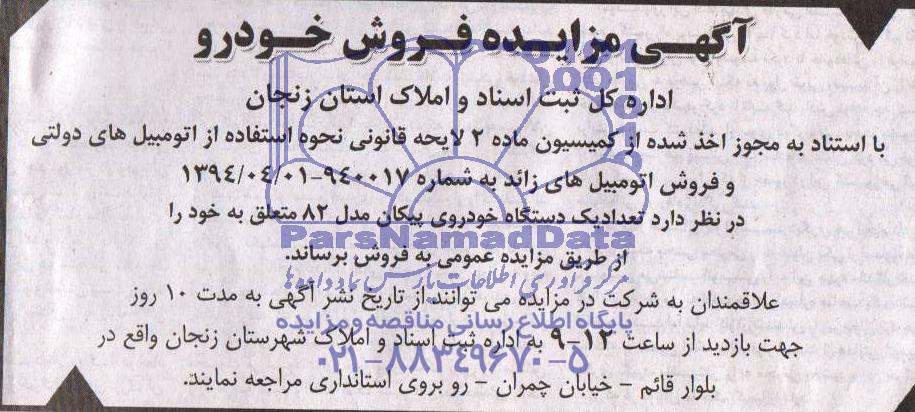 آگهی مزایده فروش خودرو
اداره کل ثبت اسناد و املاک استان زنجان
با استناد به مجوز اخذ شده از کمیسیون ماده ۲ لایحه قانونی نحوه استفاده از اتومبیل های دولتی
و فروش اتومبیل های زائد به شماره ۹۴۰۰۱۷-۱۳۹۴/۰۴/۰۱
در نظر دارد تعدادیک دستگاه خودروی پیکان مدل ۸۲ متعلق به خود را
ParsNamadData
از طریق مزایده عمومی به فروش برساند.
مرکز فرآوری اطلاعات پارس نماد داده‌ها
علاقمندان به شرکت در مزایده می توانند از تاریخ نشر آگهی به مدت ۱۰ روز
پایگاه اطلاع رسانی مناقصه و مزایده
جهت بازدید از ساعت ۱۲-۹ به اداره ثبت اسناد و املاک شهرستان زنجان واقع در
۰۲۱-۸۸۳۴۹۶۷۰-۵
بلوار قائم - خیابان چمران - رو بروی استانداری مراجعه نمایند.